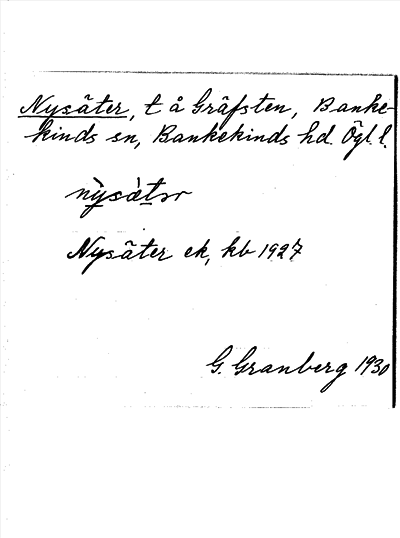 Nysäter, t å Gräfsten, Banke-
kinds sn, Bankekinds hd. Ögl. l.
nỳsæ̀tər
Nysäter ek, kb 1927
G. Granberg 1930